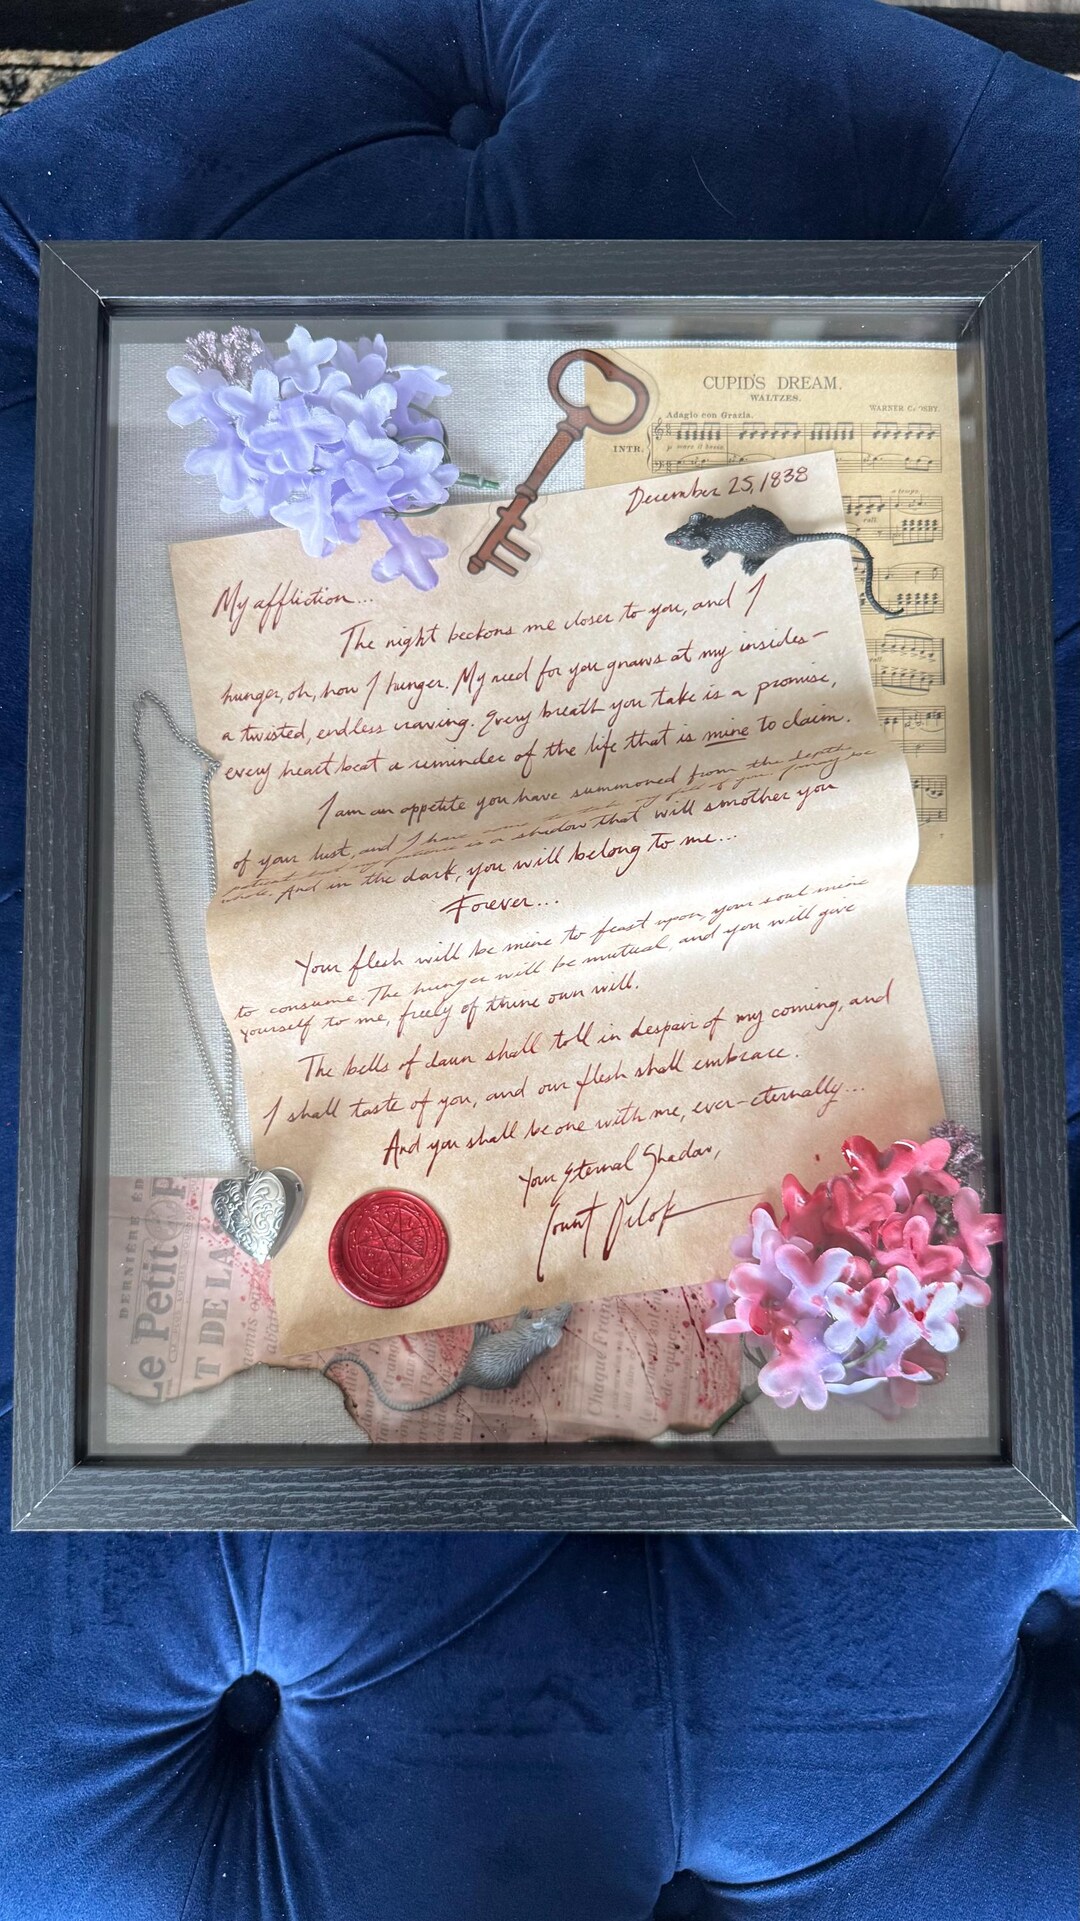 CUPID'S DREAM.
WALTZES.
WARNER
Adagio con Grazia.
INTR.
December 25, 1838
My affliction...
The night beckons me closer to you, and I
hunger, oh, how I hunger. My need for you gnaws at my insides–
a twisted, endless craving. Every breath you take is a promise,
every heartbeat a reminder of the life that is mine to claim.
I am an appetite you have summoned from the depths
of your lust, and I have come to take my of you. I may be
patient but my patience is a shadow that will smother you
whole. And in the dark, you will belong to me...
Forever...
Your flesh will be mine to feast upon, your soul mine
to consume. The hunger will be mutual, and you will give
yourself to me, freely of thine own will.
The bells of dawn shall toll in despair of my coming, and
I shall taste of you, and our flesh shall embrace.
And you shall be one with me, ever-eternally...
Your Eternal Shadow,
Count Orlok
Le Petit
T DE LA
Chaque